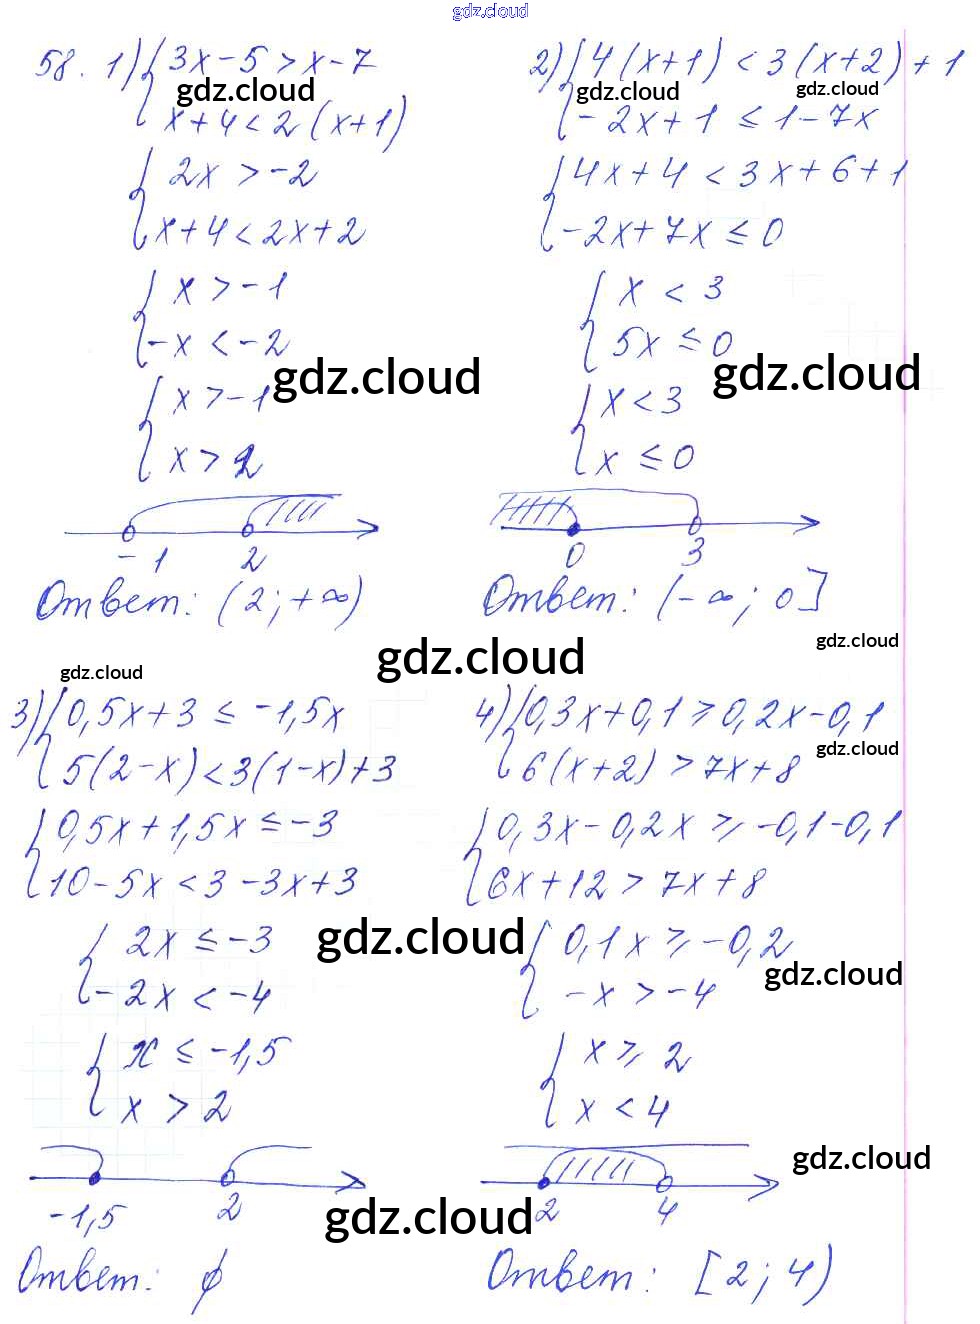 gdz.cloud
58. 1) { 3x - 5 > x - 7
gdz.cloud
x + 4 < 2 (x + 1)
{ 2x > -2
x + 4 < 2x + 2
{ x > -1
-x < -2
gdz.cloud
{ x > -1
x > 2
-1 2
Ответ: (2; +∞)
2) { 4 (x + 1) < 3 (x + 2) + 1
gdz.cloud gdz.cloud
-2x + 1 ≤ 1 - 7x
{ 4x + 4 < 3x + 6 + 1
-2x + 7x ≤ 0
{ x < 3
5x ≤ 0
gdz.cloud
{ x < 3
x ≤ 0
0 3
Ответ: (-∞; 0]
gdz.cloud
gdz.cloud
gdz.cloud
3) { 0,5x + 3 ≤ -1,5x
5 (2 - x) < 3 (1 - x) + 3
{ 0,5x + 1,5x ≤ -3
10 - 5x < 3 - 3x + 3
gdz.cloud
{ 2x ≤ -3
-2x < -4
{ x ≤ -1,5
x > 2
-1,5 2
gdz.cloud
Ответ: ∅
4) { 0,3x + 0,1 ≥ 0,2x - 0,1
gdz.cloud
6 (x + 2) > 7x + 8
{ 0,3x - 0,2x ≥ -0,1 - 0,1
6x + 12 > 7x + 8
{ 0,1x ≥ -0,2
gdz.cloud
-x > -4
{ x ≥ 2
x < 4
gdz.cloud
2 4
Ответ: [2; 4)